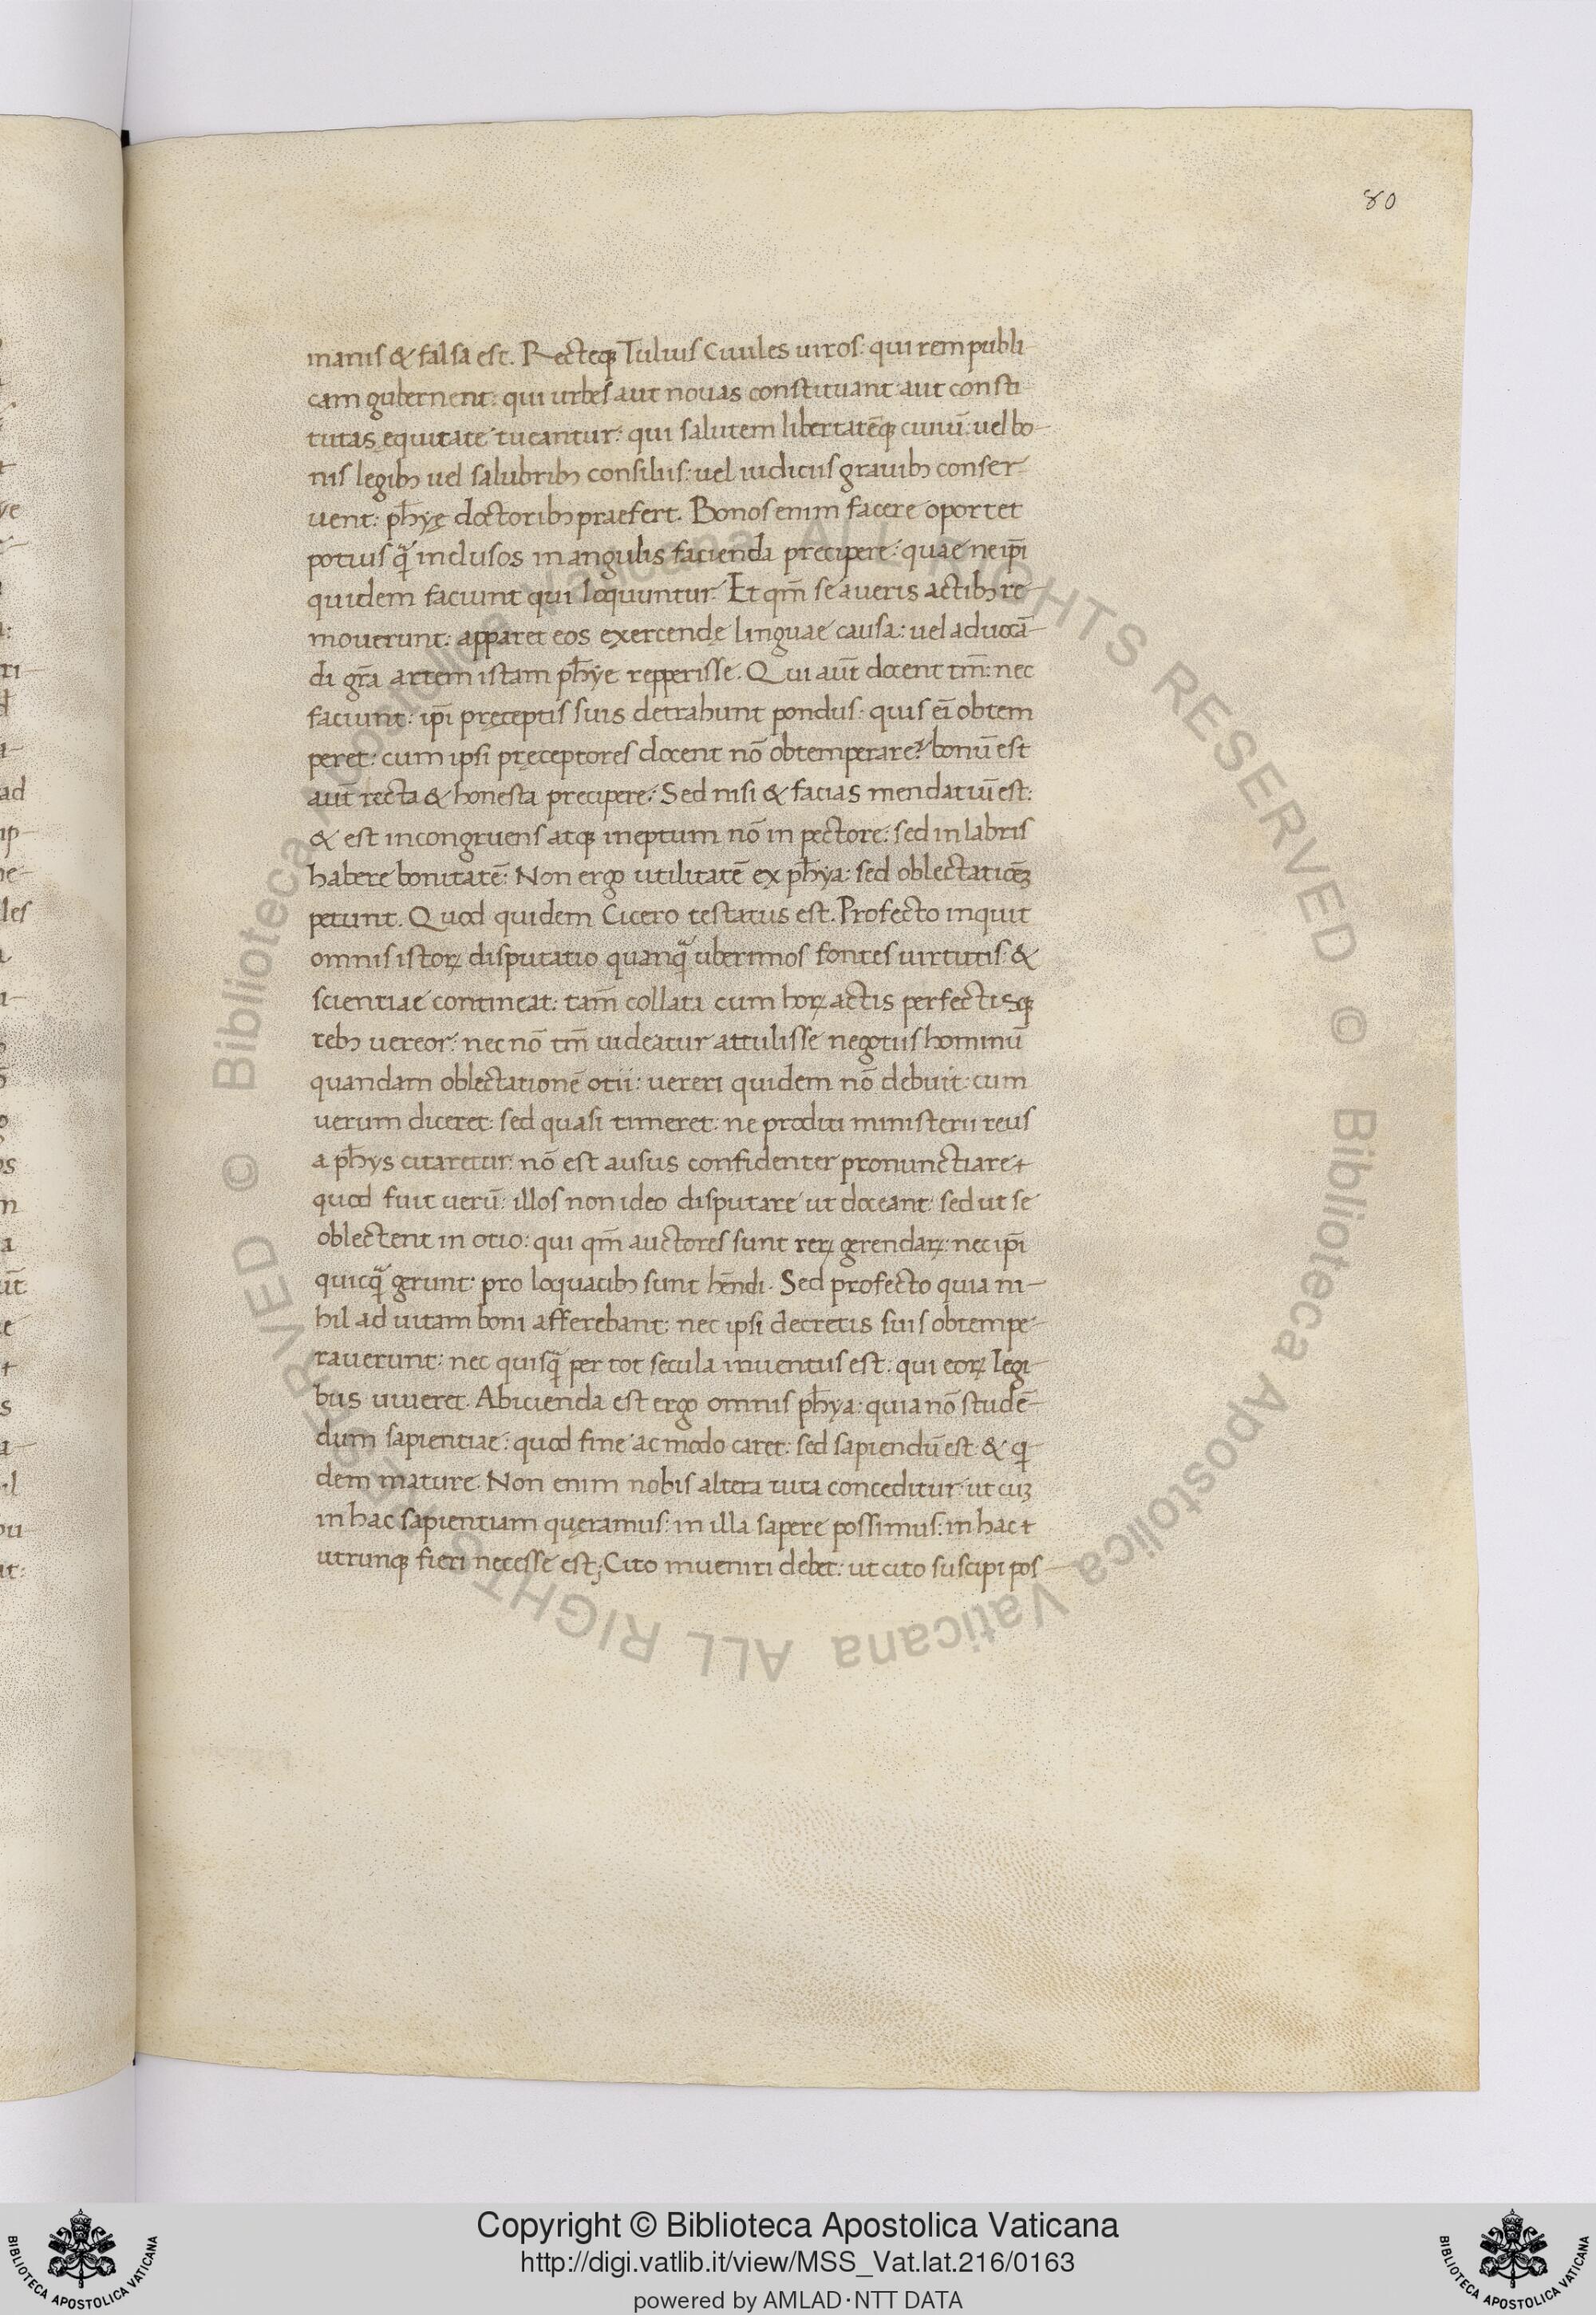 80
manis & falsa est. Recteq; Tulius Ciuiles uiros: qui rem publi-
cam gubernent: qui urbes aut nouas constituant aut consti-
tutas equitate tueantur: qui salutem libertatēq; ciuiū: uel bo-
nis legib; uel salubrib; consiliis: uel iudiciis grauib; conser-
uent: phȳę doctorib; praefert. Bonos enim facere oportet
potius q̃ inclusos in angulis facienda precipere: quae ne ip̄i
quidem faciunt qui loquuntur. Et qm̄ se a ueris actib; re-
mouerunt: apparet eos exercendę linguae causa: uel aduocā-
di gr̄a artem istam phȳe repperisse. Qui aūt docent tm̄: nec
faciunt: ip̄i pręceptis suis detrahunt pondus: quis ei obtem
peret: cum ipsi pręceptores docent nō obtemperare? bonū est
aūt recta & honesta precipere: Sed nisi & facias mendatiū est:
& est incongruens atq; ineptum nō in pectore: sed in labris
habere bonitatē: Non ergo utilitatē ex phȳa: sed oblectatiōeꝫ
petunt. Quod quidem Cicero testatus est. Profecto inquit
omnis istoꝝ disputatio quanq̃ uberrimos fontes uirtutis: &
scientiae contineat: tam̄ collata cum hoꝝ actis perfectisq;
reb; uereor: nec nō tm̄ uideatur attulisse negotiis hominū
quandam oblectationē otii: uereri quidem nō debuit: cum
uerum diceret: sed quasi timeret: ne proditi ministerii reus
a phȳs citaretur: nō est ausus confidenter pronunctiare
quod fuit uerū: illos non ideo disputare ut doceant: sed ut se
oblectent in otio: qui qm̄ auctores sunt reꝝ gerendaꝝ: nec ip̄i
quicq̃ gerunt: pro loquacib; sunt hn̄di. Sed profecto quia ni-
hil ad uitam boni afferebant: nec ipsi decretis suis obtempe-
rauerunt: nec quisq̃ per tot secula inuentus est: qui eoꝝ legi-
bus uiueret. Abicienda est ergo omnis phȳa: quia nō studē-
dum sapientiae: quod fine ac modo caret: sed sapiendū est & q̇-
dem mature. Non enim nobis altera uita conceditur: ut cuꝫ
in hac sapientiam quęramus: in illa sapere possimus: in hac
utrunq; fieri necesse est; Cito inueniri debet: ut cito suscipi pos-
Copyright © Biblioteca Apostolica Vaticana
http://digi.vatlib.it/view/MSS_Vat.lat.216/0163
powered by AMLAD·NTT DATA